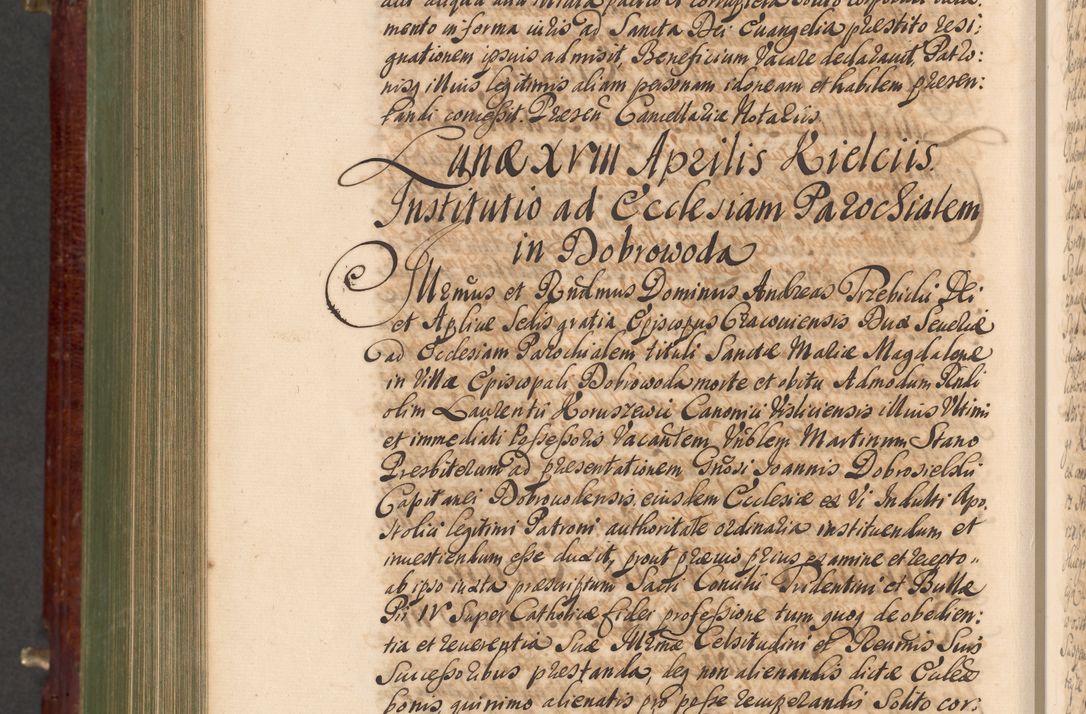 mento in forma iuris ad Sancta Dei Euangelia præstito resi:
gnationem ipsius admisit, Beneficium Vacare declarauit, Patro:
nisq illius legitimis aliam personam idoneam et habilem præsen:
tandi concessit. Præsen Cancellariæ Notariis.
Lunæ XVIII Aprilis Kielciis.
Institutio ad Ecclesiam Parochialem
in Dobrowoda
Illrmus et Rndmus Dominus Andreas Trzebicki Dei
et Apliæ Sedis gratia Episcopus Cracouiensis Dux Seueriæ
ad Ecclesiam Parochialem tituli Sanctæ Mariæ Magdalenæ
in Villa Episcopali Dobrowoda morte et obitu Admodum Rndi
olim Laurentii Koruszewic Canonici Visliciensis illius Vltimi
et immediati Possessoris Vacantem Vnblem Martinum Stano
Presbiterum ad præsentationem Gnosi Joannis Dobrosielski
Capitanei Dobrouodensis eiusdem Ecclesiæ ex Vi Indulti Apo
stolici legitimi Patroni authoritate ordinaria instituendum et
inuestiendum esse duxit, prout præuio prius examine et recepto
ab ipso iuxta præscriptum Sacri Concilii Tridentini et Bullæ
Pii IV Super Catholicæ fidei professione tum quoq de obedien:
tia et reuerentia Suæ Illrmæ Celsitudini et Reuermis Suis
Successoribus præstanda, deq non alienandis dictæ Eccleæ
bonis, quinimo alienatis pro posse recuperandis Solito cor: